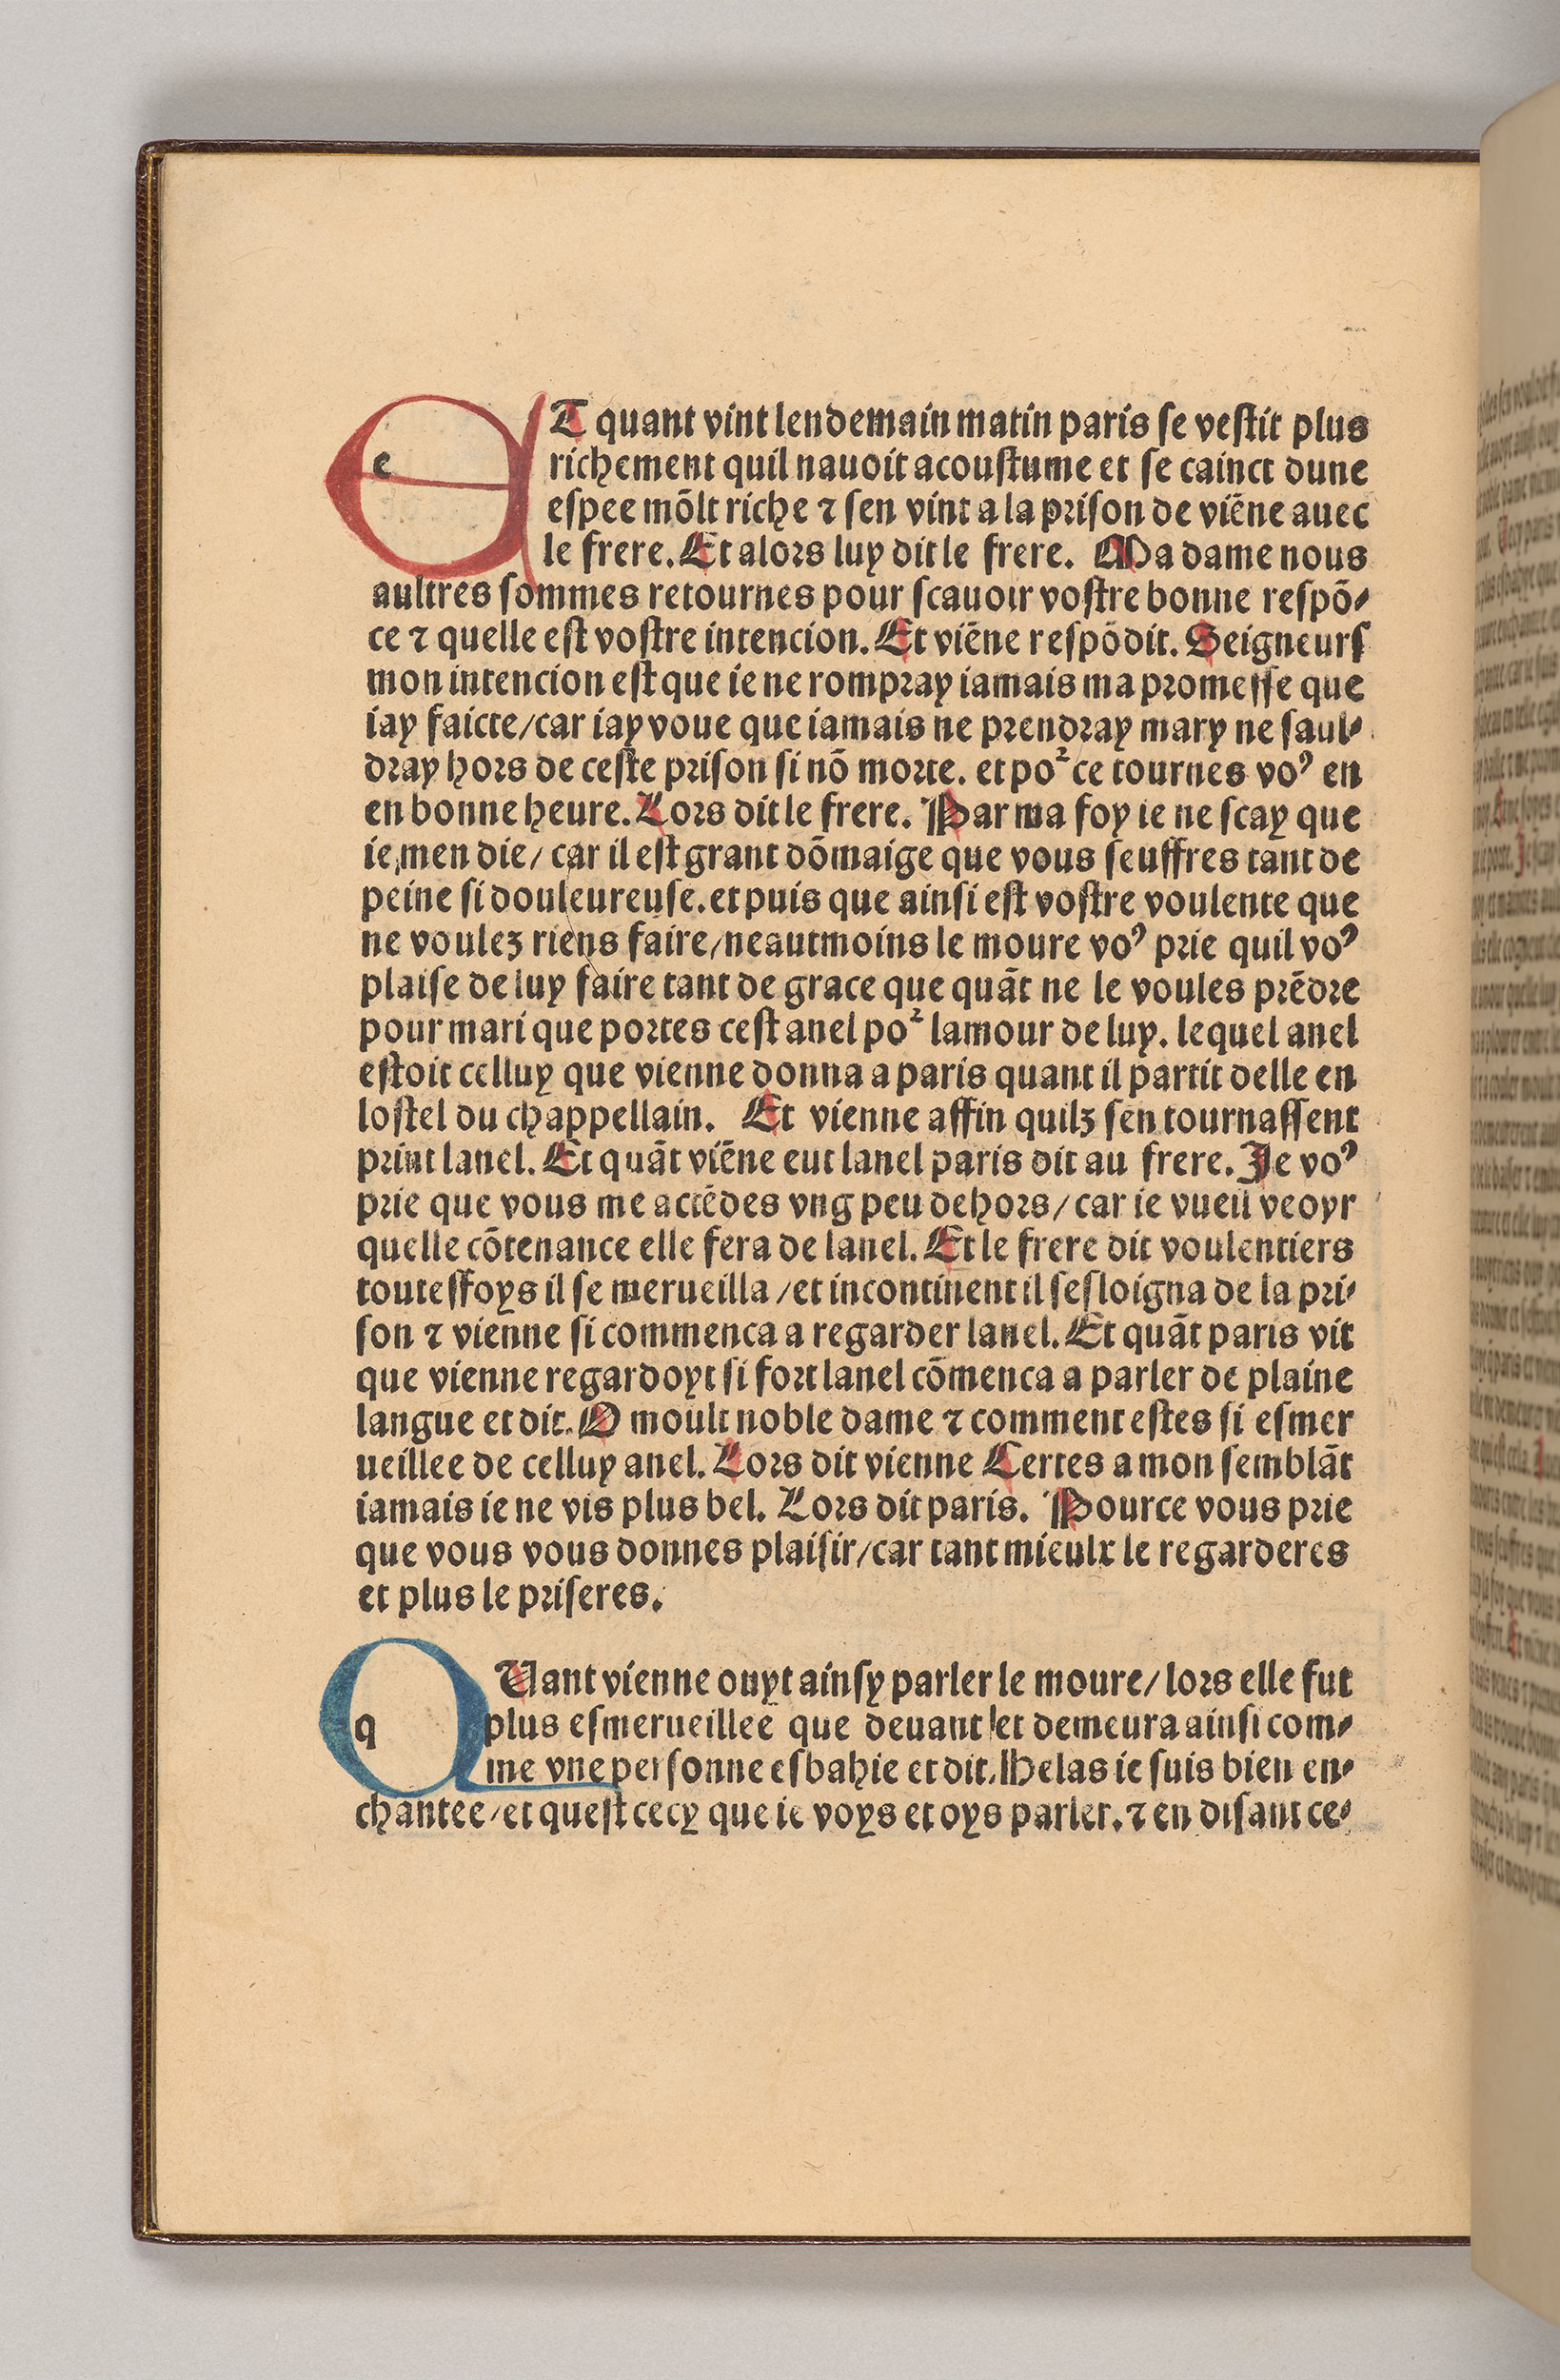 ET quant vint lendemain matin paris ſe veſtit plus
richement quil nauoit acouſtume et ſe cainct dune
eſpee mōlt riche ⁊ ſen vint a la priſon de viēne auec
le frere. Et alors luy dit le frere. Ma dame nous
aultres ſommes retournes pour ſcauoir voſtre bonne reſpō⸗
ce ⁊ quelle eſt voſtre intencion. Et viēne reſpōdit. Seigneurſ
mon intencion eſt que ie ne rompray iamais ma promeſſe que
iay faicte/car iay voue que iamais ne prendray mary ne ſaul⸗
dray hors de ceſte priſon ſi nō morte. et poᷣ ce tournes vo⁹ en
en bonne heure. Lors dit le frere. Par ma foy ie ne ſcay que
ie men die/ car il eſt grant dōmaige que vous ſeuffres tant de
peine ſi douleureuſe. et puis que ainſi eſt voſtre voulente que
ne voulez riens faire/neautmoins le moure vo⁹ prie quil vo⁹
plaiſe de luy faire tant de grace que quāt ne le voules prēdre
pour mari que portes ceſt anel poᷣ lamour de luy. lequel anel
eſtoit celluy que vienne donna a paris quant il partit delle en
loſtel du chappellain. Et vienne affin quilz ſen tournaſſent
print lanel. Et quāt viēne eut lanel paris dit au frere. Je vo⁹
prie que vous me actēdes vng peu dehors/car ie vueil veoyr
quelle cōtenance elle fera de lanel. Et le frere dit voulentiers
touteſſoys il ſe merueilla/et incontinent il ſeſloigna de la pri⸗
ſon ⁊ vienne ſi commenca a regarder lanel. Et quāt paris vit
que vienne regardoyt ſi fort lanel cōmenca a parler de plaine
langue et dit. O moult noble dame ⁊ comment eſtes ſi eſmer
ueillee de celluy anel. Lors dit vienne Certes a mon ſemblāt
iamais ie ne vis plus bel. Lors dit paris. Pource vous prie
que vous vous donnes plaiſir/car tant mieulx le regarderes
et plus le priſeres.
QUant vienne ouyt ainſy parler le moure/lors elle fut
plus eſmerueillee que deuant et demeura ainſi com⸗
me vne perſonne eſbahie et dit. Helas ie ſuis bien en⸗
chantee/et queſt cecy que ie voys et oys parler. ⁊ en diſant ce⸗